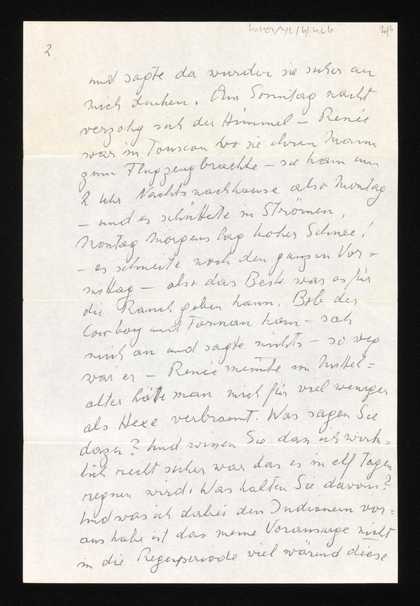 2
und sagte da wurden sie sicher an
mich denken. Am Sonntag nacht
verzohg sich der Himmel – Renée
war in Touscon wo sie ihren Mann
zum Flugzeug brachte – sie kam um
2 Uhr Nachts nachhause also Montag
– und es schüttete in Strömen,
Montag Morgens lag hoher Schnee!
– es schneite noch den ganzen Vor-
mittag – also das Beste was es für
die Ranch geben kann. Bob der
Cowboy und Forman kam – sah
mich an und sagte nichts – so weg
war er – Renée meinte im Mittel=
alter hätte man mich für viel weniger
als Hexe verbrannt. Was sagen Sie
dazu? Und wissen Sie, dass ich wirk=
lich recht sicher war das es in elf Tagen
regnen wird! Was halten Sie davon?
Und was ich dabei den Indianern vor=
aus habe ist das meine Voraussage nicht
in die Regenperiode viel wärend diese